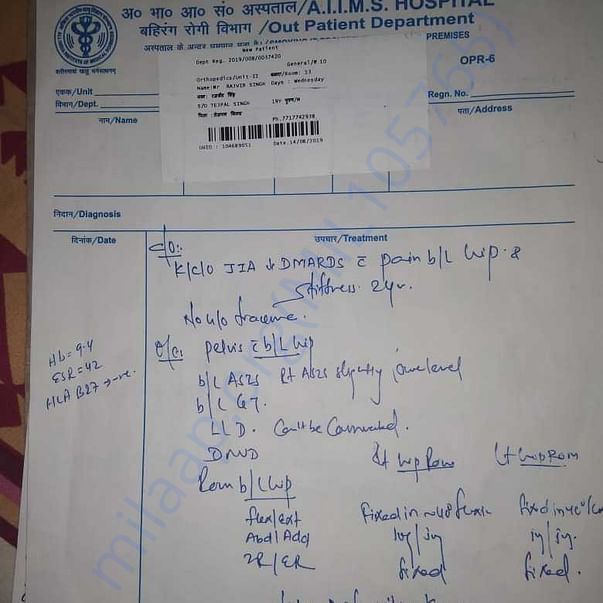 अ० भा० आ० सं० अस्पताल/A.I.I.M.S. HOSPITAL
बहिरंग रोगी विभाग /Out Patient Department
अस्पताल के अन्दर धूम्रपान मना है।
PREMISES
New Patient
Dept Reg. 2019/008/0037420
General/₹ 10
OPR-6
Orthopedics/Unit-II
कमरा/Room: 13
Name:Mr RAJVIR SINGH
Days : Wednesday
S/O TEJPAL SINGH
Ph.7717742938
UHID : 104689051
Date.14/08/2019
एकक/Unit
विभाग/Dept.
Regn. No.
नाम/Name
पता/Address
निदान/Diagnosis
दिनांक/Date
उपचार/Treatment
C/O:-
K/C/O JIA DMARDS c pain b/L hip &
Stiffness 2yr.
No h/o trauma.
O/E: pelvis c b/L hip
Hb = 9.4
ESR = 42
HLA B27 → -ve.
b/L ASIS Rt ASIS slightly level
b/L GT.
LLD. Can't be
DNVD
Rt hip ROM
Lt hip ROM
Rom b/L hip
flex/ext
Fixed in
fixed in
Abd/Add
IR/ER
fixed
fixed.
milaap.org MNL 1057667